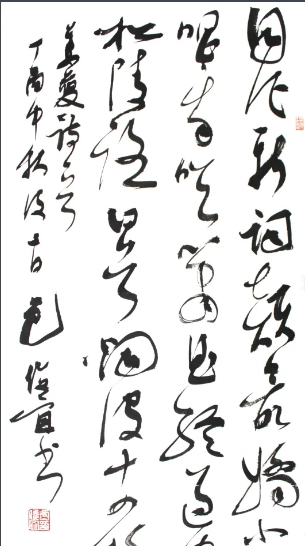 自作新词韵最嬌小
唱我吹箫曲终过
松陵路回首烟波十四
姜夔诗
丁酉中秋后
书